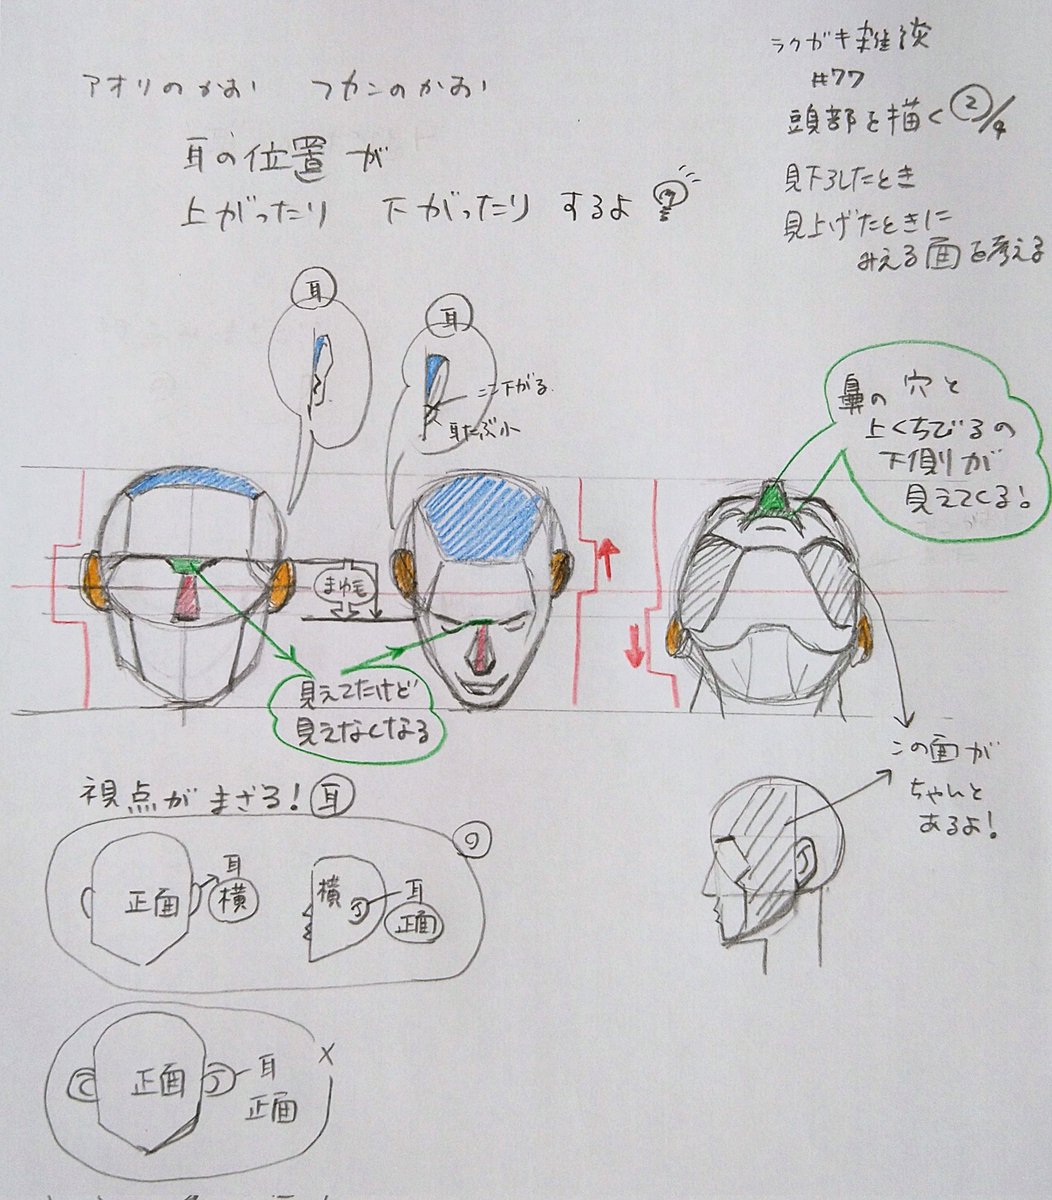 ラクガキ雑談
#77
頭部を描く②/4
見下ろしたとき
見上げたときに
みえる面を考える
アオリのかお　フカンのかお
耳の位置が
上がったり　下がったり　するよ
耳
耳
ここ下がる
耳たぶ小
鼻の穴と
上くちびるの
下側が
見えてくる!
まゆ毛
見えてたけど
見えなくなる
この面が
ちゃんと
あるよ!
視点がまざる!耳
正面
耳
横
横
耳
正面
正面
耳
正面
×